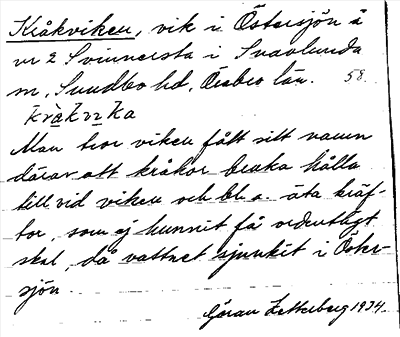 Kråkviken, vik i Östersjön å
nr 2 Svinnersta i Svavlunda
sn, Sundbo hd, Örebro län. 58.
kràkvika
Man tror viken fått sitt namn
därav att kråkor bruka hålla
till vid viken och bl. a. äta kräf-
tor, som ej hunnit få ordentligt
skal, då vattnet sjunkit i Öster-
sjön.
Göran Zetterberg 1934.